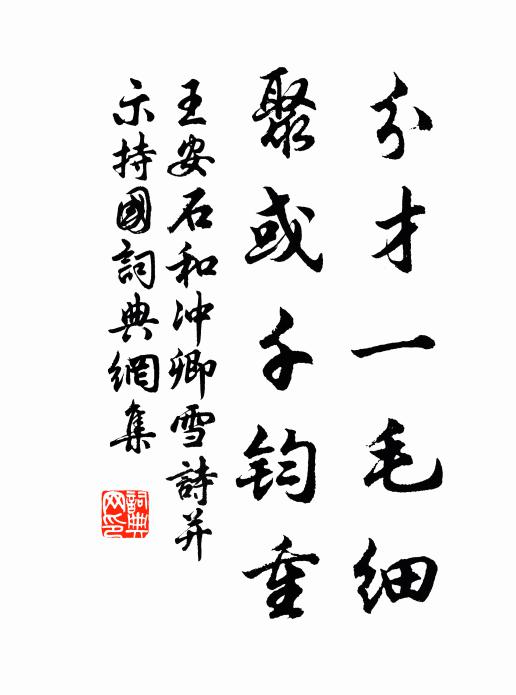 分才一毛细
聚或千钧重
王安石和冲卿雪詩并
示持國詞典網集
詞典网印